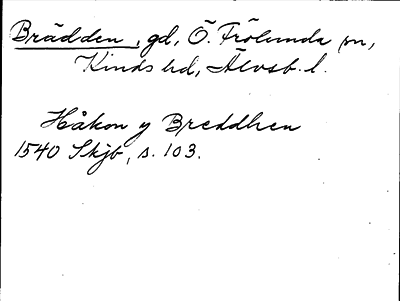 Brädden, gd, Ö. Frölunda sn,
Kinds hd, Älvsb. l.
Håkon y Breddhen
1540 Skjb, s. 103.